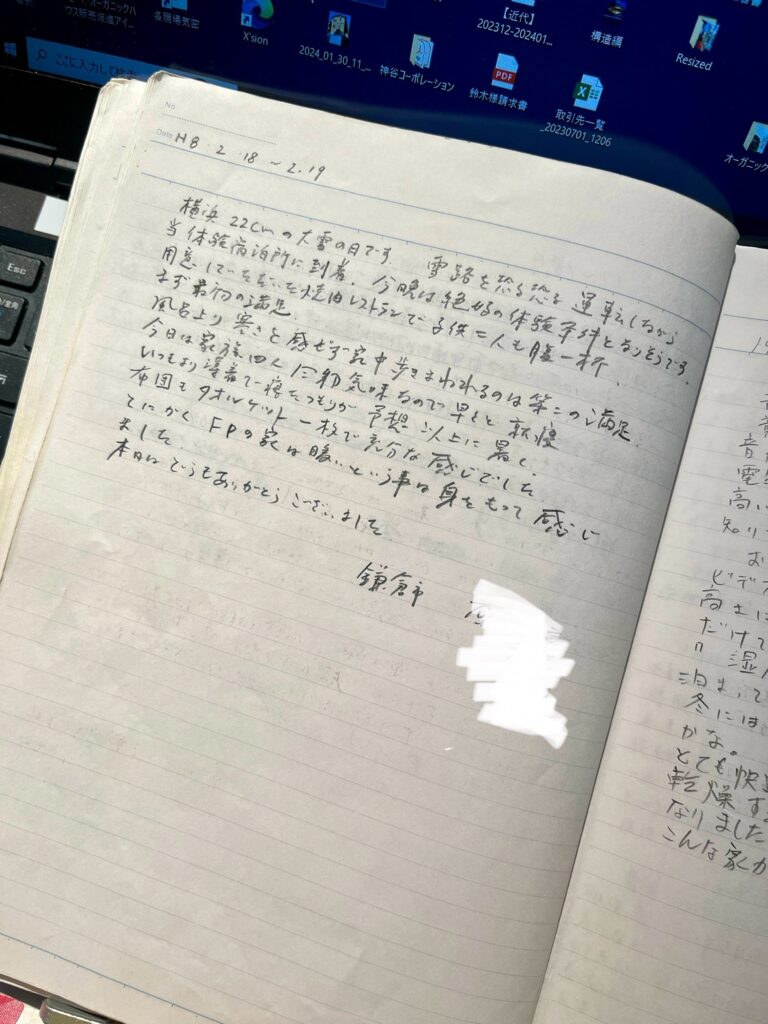 オーガニックハ
ウス販売促進アイ...
各現場気密
X'sion
2024_01_30_11_...
神谷コーポレーション
【近代】
202312-202401...
PDF
鈴木様請求書
構造編
取引先一覧
_20230701_1206
Resized
オーガニック
ここに入力して検索
Esc
No.
Date H8・2・18 〜 2.19
横浜 22cmの大雪の日です。 雪路を恐る恐る運転しながら
当体験宿泊所に到着。今晩は絶好の体験条件となりそうです。
用意していただいた焼肉レストランで子供二人も腹一杯、
まず最初の満足。
風呂上り寒さを感ぜず家中歩きまわれるのは第二の満足。
今日は家族四人 気味なので早々と就寝
いつもより薄着で寝たつもりが予想以上に暑く、
布団もタオルケット一枚で充分な感じでした。
とにかくFPの家は暖いという事は身をもって感じ
ました。
本日はどうもありがとうございました
鎌倉市
音
電
高い
知り
お
ビデオ
高土に
だけて
湿
泊まって
冬には
かな。
とても快適
乾燥す
なりました
こんな家が